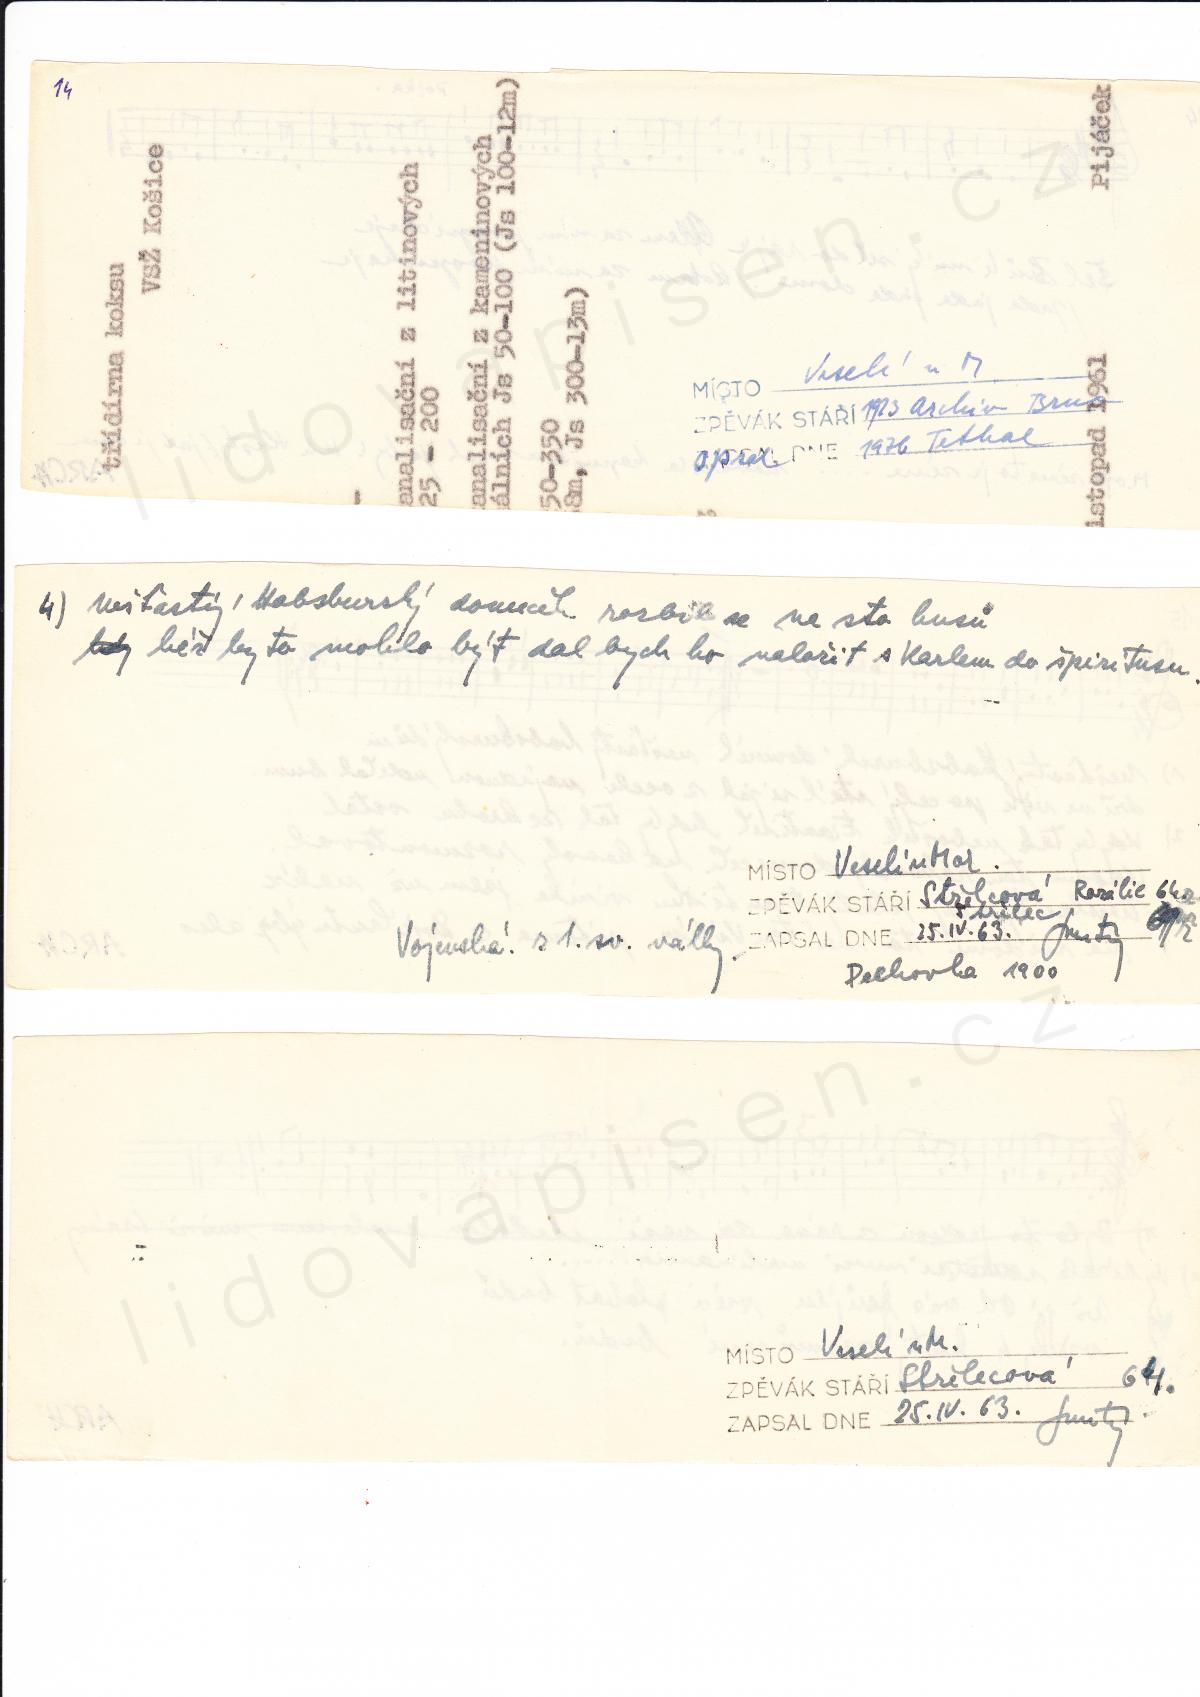 14
třídírna koksu
VSŽ Košice
analisační z litinových
25 - 200
analisační z kameninových
álních Js 50-100 (Js 100-12m)
50-350
8m, Js 300-13m)
Pijáček
istopad 1961
MÍSTO Veselí n M.
ZPĚVÁK STÁŘÍ 1923 Archiv Brno
DNE 1976
4) Nešťastný Habsburský domeček rozbil se na sto kusů
béž by to mohlo být dal bych ho naložit s Karlem do špiritusu.
MÍSTO Veselí n Mor.
ZPĚVÁK STÁŘÍ Střelcová Rozálie 64
Střelec
ZAPSAL DNE 25.IV.63.
Vojenská! z 1. sv. války.
Pechovka 1900
MÍSTO Veselí n M.
ZPĚVÁK STÁŘÍ Střelecová 64.
ZAPSAL DNE 25.IV.63.
lidovapisen.cz
lidovapisen.cz